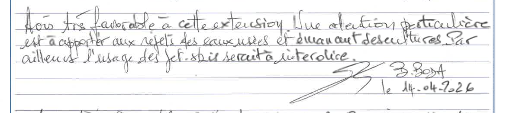 Avis très favorable à cette extension. Une attention particulière
est à apporter aux rejets des eaux usées et émanant des cultures. Par
ailleurs l'usage des jet-skis serait à interdire.
B. BODA
le 14.04.2026